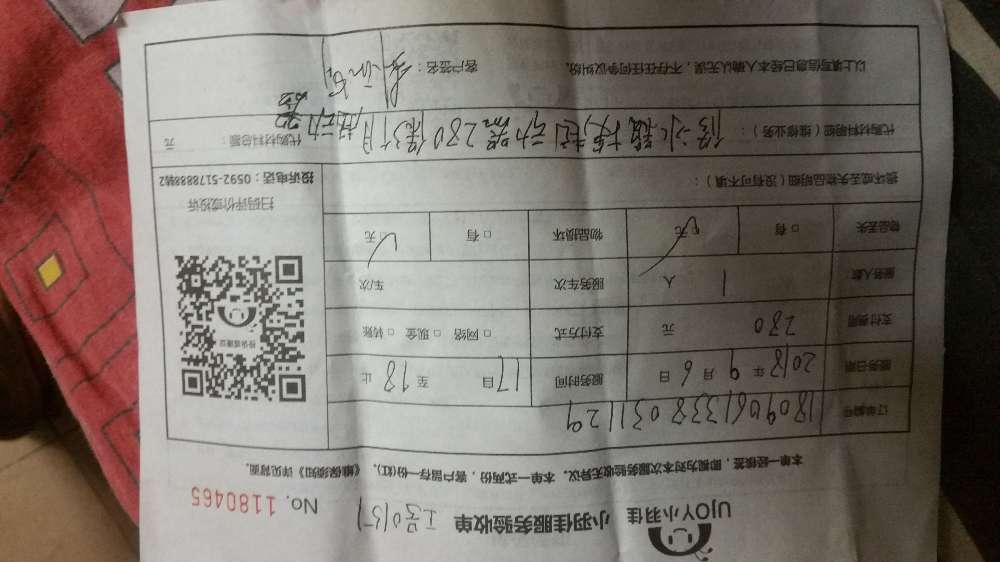 UJOY小羽佳 小羽佳服务验收单 工号0157 No. 1180465
本单一经接签，即视为对本次服务验收无异议，本单一式两份，客户留存一份(红)。《维保须知》详见背面。
订单编号 18090613380311 29
服务日期 2018 年 9 月 6 日 服务时间 17 日 至 18 止
支付费用 280 元 支付方式 □ 网络 □ 现金 □ 转账
服务人数 1 人 服务车次 车次
物品丢失 □ 有 □ 无 物品损坏 □ 有 □ 无
扫码评价或投诉
投诉电话：0592-5178888转2
损坏或丢失物品明细（没有可不填）：
代购材料明细（维修业务）： 修冰箱换起动器280保3个月 起动器
代购材料总额： 元
以上填写信息已经本人确认无误，不存在任何争议纠纷。 客户签名：